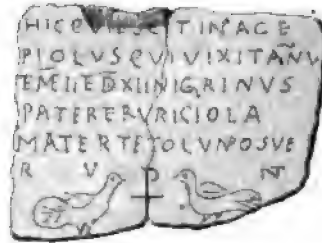 HICQVIESC TINPACE
PIOLVSQVIVIXITAÑV
EMIIEDXIINIGRINVS
PATERERVRICIOLA
MATERTETOLVMPOSVE
R V NT